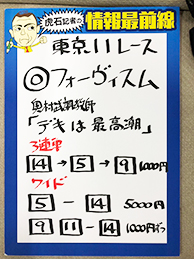 虎石記者の
情報最前線
東京11レース
◎フォーヴィスム
奥村武調教師
「デキは最高潮」
3連単
14→5→9 1000円
ワイド
5-14 5000円
9 11-14 1000円ずつ